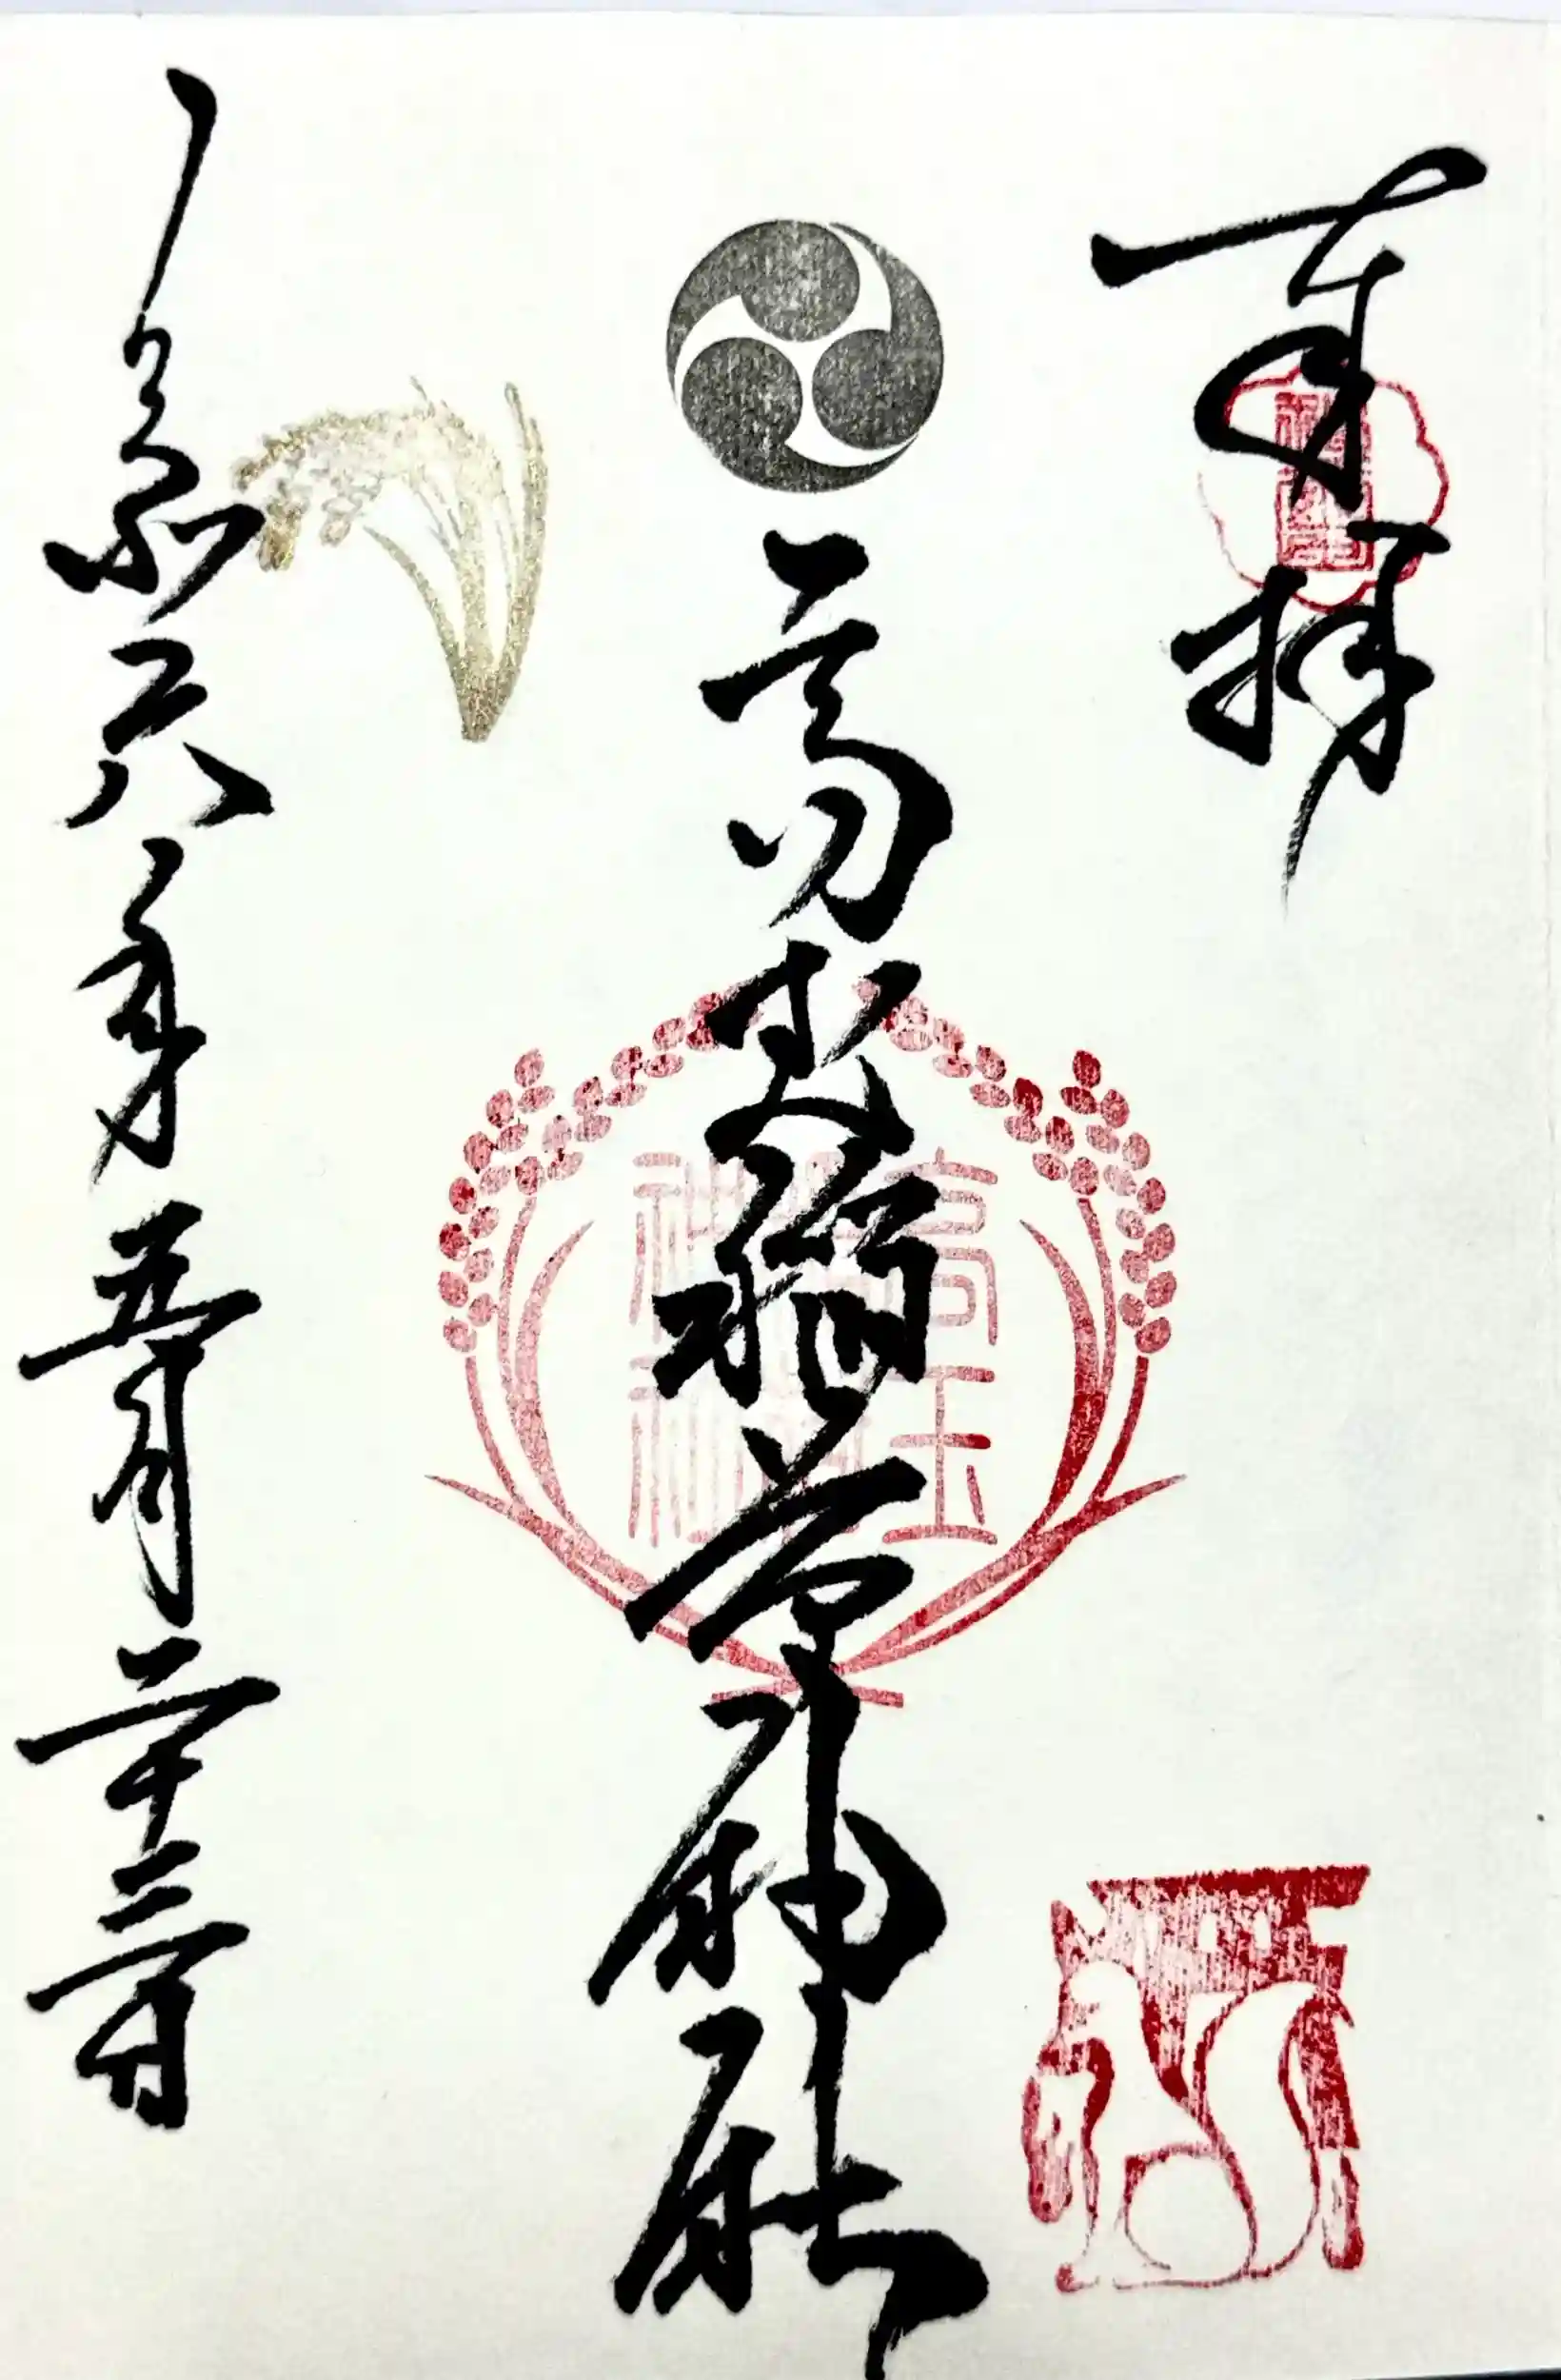 奉拝
高玉稲荷神社
高玉
稲荷
神社
令和六年五月二十三日